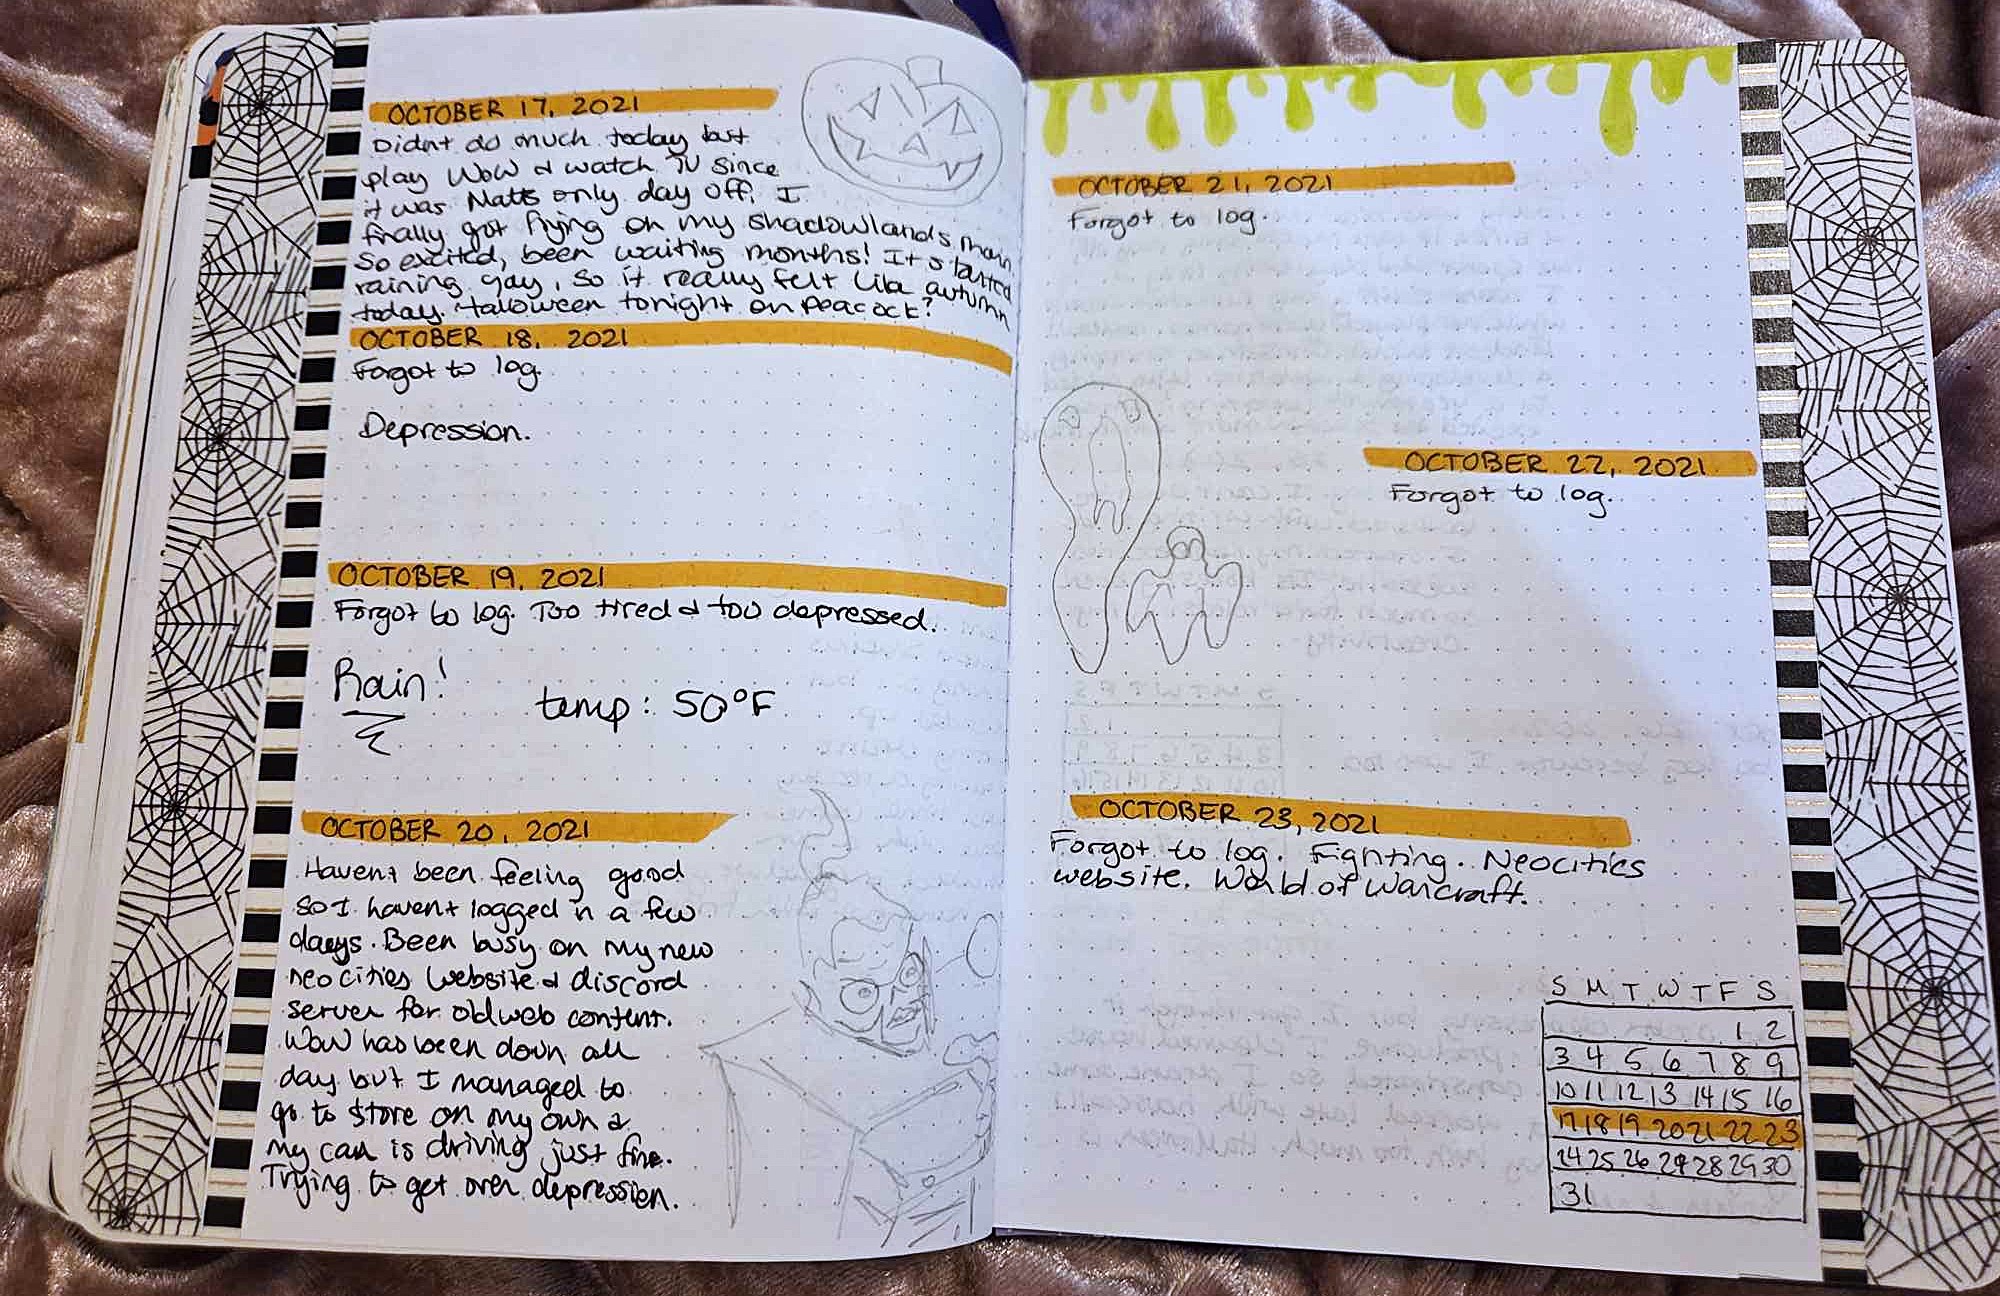 OCTOBER 17, 2021
Didnt do much today but
play WoW & watch TV since
it was Matts only day off. I
finally got flying on my shadowlands main
So excited, been waiting months! It started
raining yay, so it really felt like autumn
today. Halloween tonight on Peacock?
OCTOBER 18, 2021
Forgot to log.
Depression.
OCTOBER 19, 2021
Forgot to log. Too tired & too depressed.
Rain!
temp: 50°F
OCTOBER 20, 2021
Havent been feeling good
so I havent logged in a few
days. Been busy on my new
neocities website & discord
server for oldweb content.
WoW has been down all
day but I managed to
go to store on my own &
my car is driving just fine.
Trying to get over depression.
OCTOBER 21, 2021
Forgot to log.
OCTOBER 22, 2021
Forgot to log.
OCTOBER 23, 2021
Forgot to log. Fighting. Neocities
website. World of Warcraft.
S M T W T F S
1 2
3 4 5 6 7 8 9
10 11 12 13 14 15 16
17 18 19 20 21 22 23
24 25 26 27 28 29 30
31